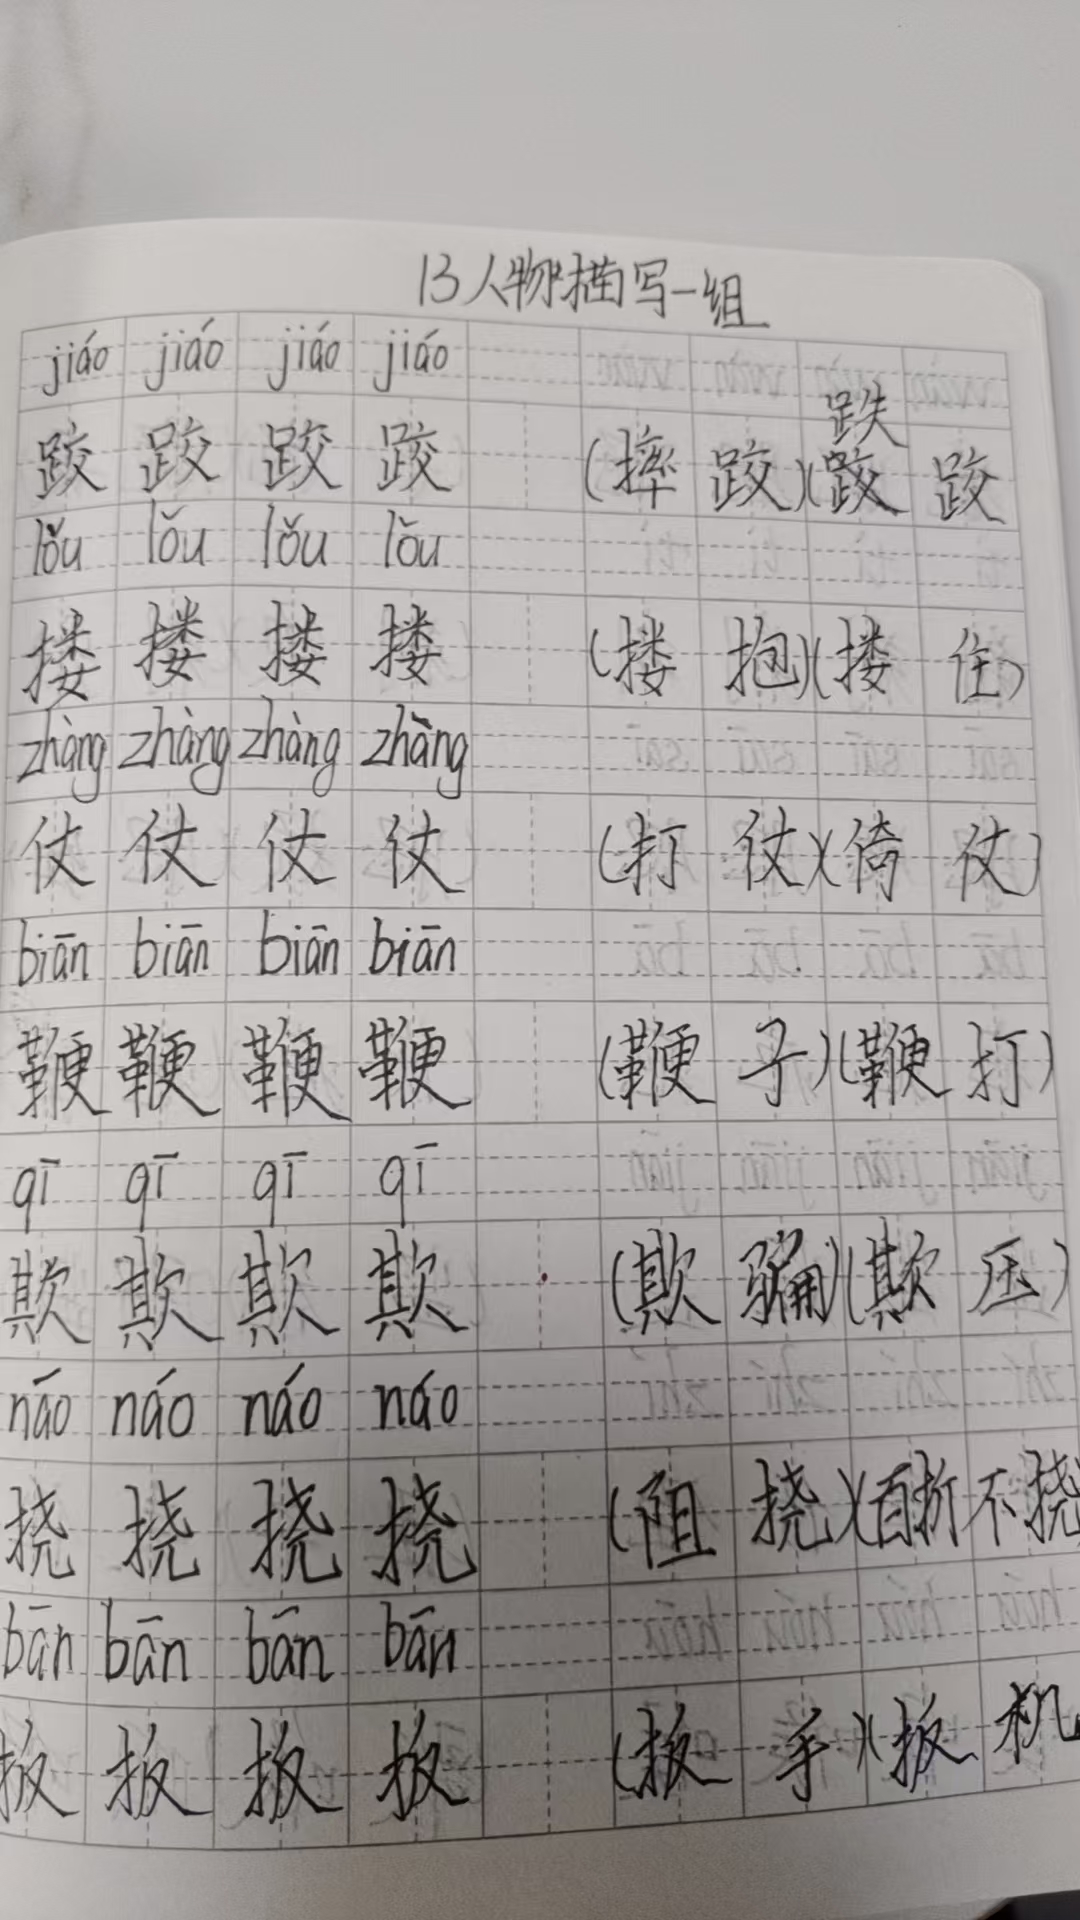 13人物描写一组
jiáo jiáo jiáo jiáo
跤 跤 跤 跤 (摔跤)(跤跌跤
lǒu lǒu lǒu lǒu
搂 搂 搂 搂 (搂抱)(搂住)
zhàng zhàng zhàng zhàng
仗 仗 仗 仗 (打仗)(倚仗)
biān biān biān biān
鞭 鞭 鞭 鞭 (鞭子)(鞭打)
qī qī qī qī
欺 欺 欺 欺 (欺骗)(欺压)
náo náo náo náo
挠 挠 挠 挠 (阻挠)(百折不挠
bān bān bān bān
扳 扳 扳 扳 (扳手)(扳机